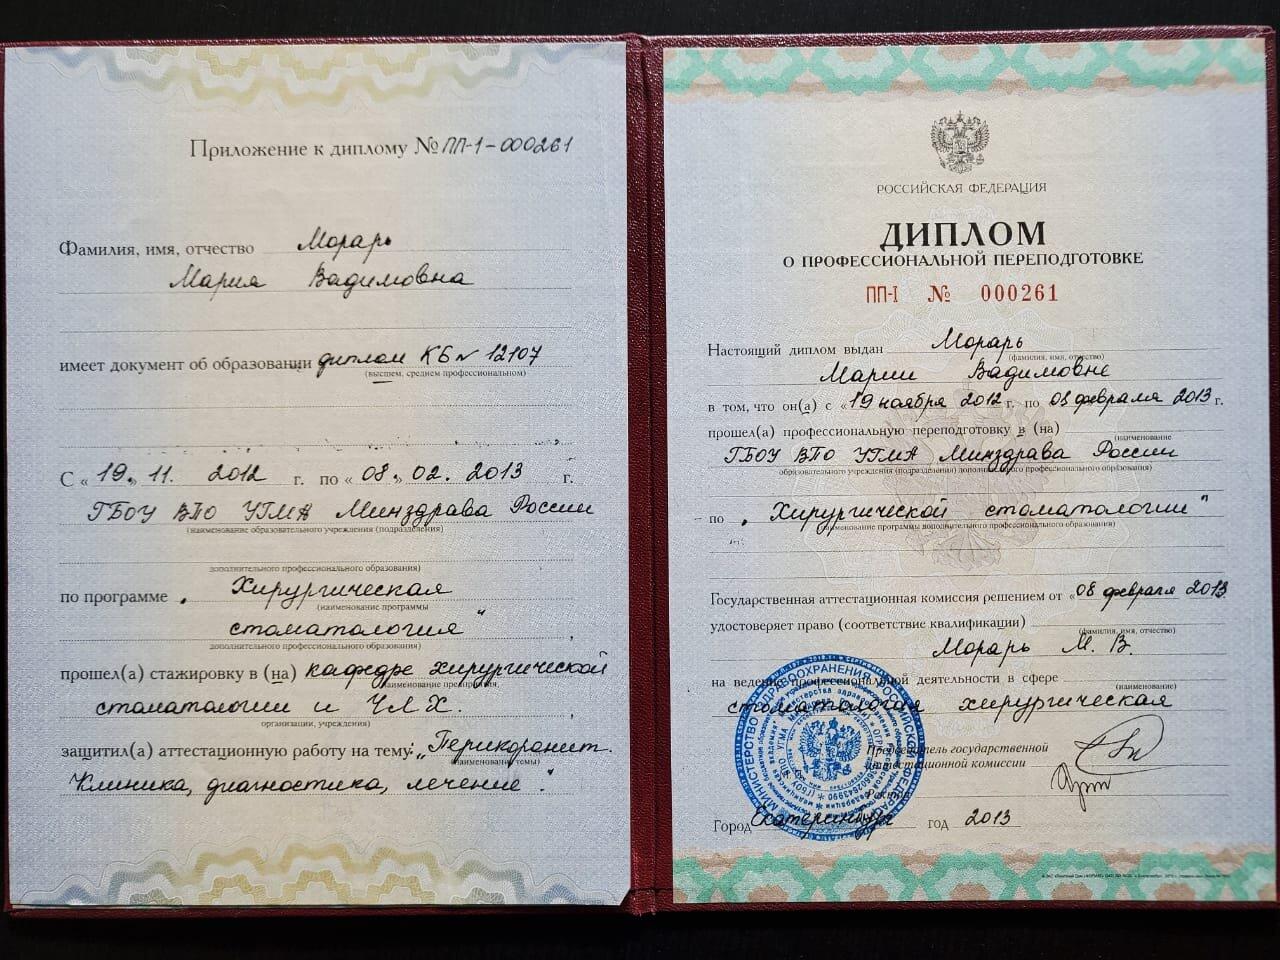 Приложение к диплому № ПП-1-000261
Фамилия, имя, отчество Морарь
Мария Вадимовна
имеет документ об образовании диплом КБ № 12107
(высшем, среднем профессиональном)
С «19» 11. 2012 г. по «08» 02. 2013 г.
ГБОУ ВПО УГМА Минздрава России
(наименование образовательного учреждения (подразделения)
дополнительного профессионального образования)
по программе „Хирургическая
(наименование программы
стоматология“,
дополнительного профессионального образования)
прошел(а) стажировку в (на) кафедре хирургической
(наименование предприятия,
стоматологии и ЧЛХ.,
организации, учреждения)
защитил(а) аттестационную работу на тему: „Перикоронит.
(наименование темы)
Клиника, диагностика, лечение“.
РОССИЙСКАЯ ФЕДЕРАЦИЯ
ДИПЛОМ
О ПРОФЕССИОНАЛЬНОЙ ПЕРЕПОДГОТОВКЕ
ПП-I № 000261
Настоящий диплом выдан Морарь
(фамилия, имя, отчество)
Марии Вадимовне
в том, что он(а) с «19 ноября 2012 г. по 08 февраля 2013 г.
прошел(а) профессиональную переподготовку в (на)
(наименование
ГБОУ ВПО УГМА Минздрава России
образовательного учреждения (подразделения) дополнительного профессионального образования)
по „Хирургической стоматологии“
(наименование программы дополнительного профессионального образования)
Государственная аттестационная комиссия решением от «08 февраля 2013
удостоверяет право (соответствие квалификации)
(фамилия, имя, отчество)
Морарь М. В.
на ведение профессиональной деятельности в сфере
(наименование)
стоматология хирургическая
Председатель государственной
аттестационной комиссии
Ректор
Город Екатеринбург год 2013
МИНИСТЕРСТВО ЗДРАВООХРАНЕНИЯ РОССИЙСКОЙ ФЕДЕРАЦИИ